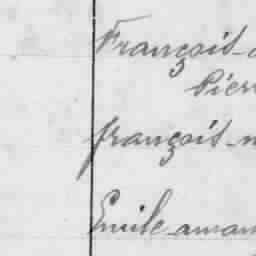 François-
Pierr
françois-
Emile-aman